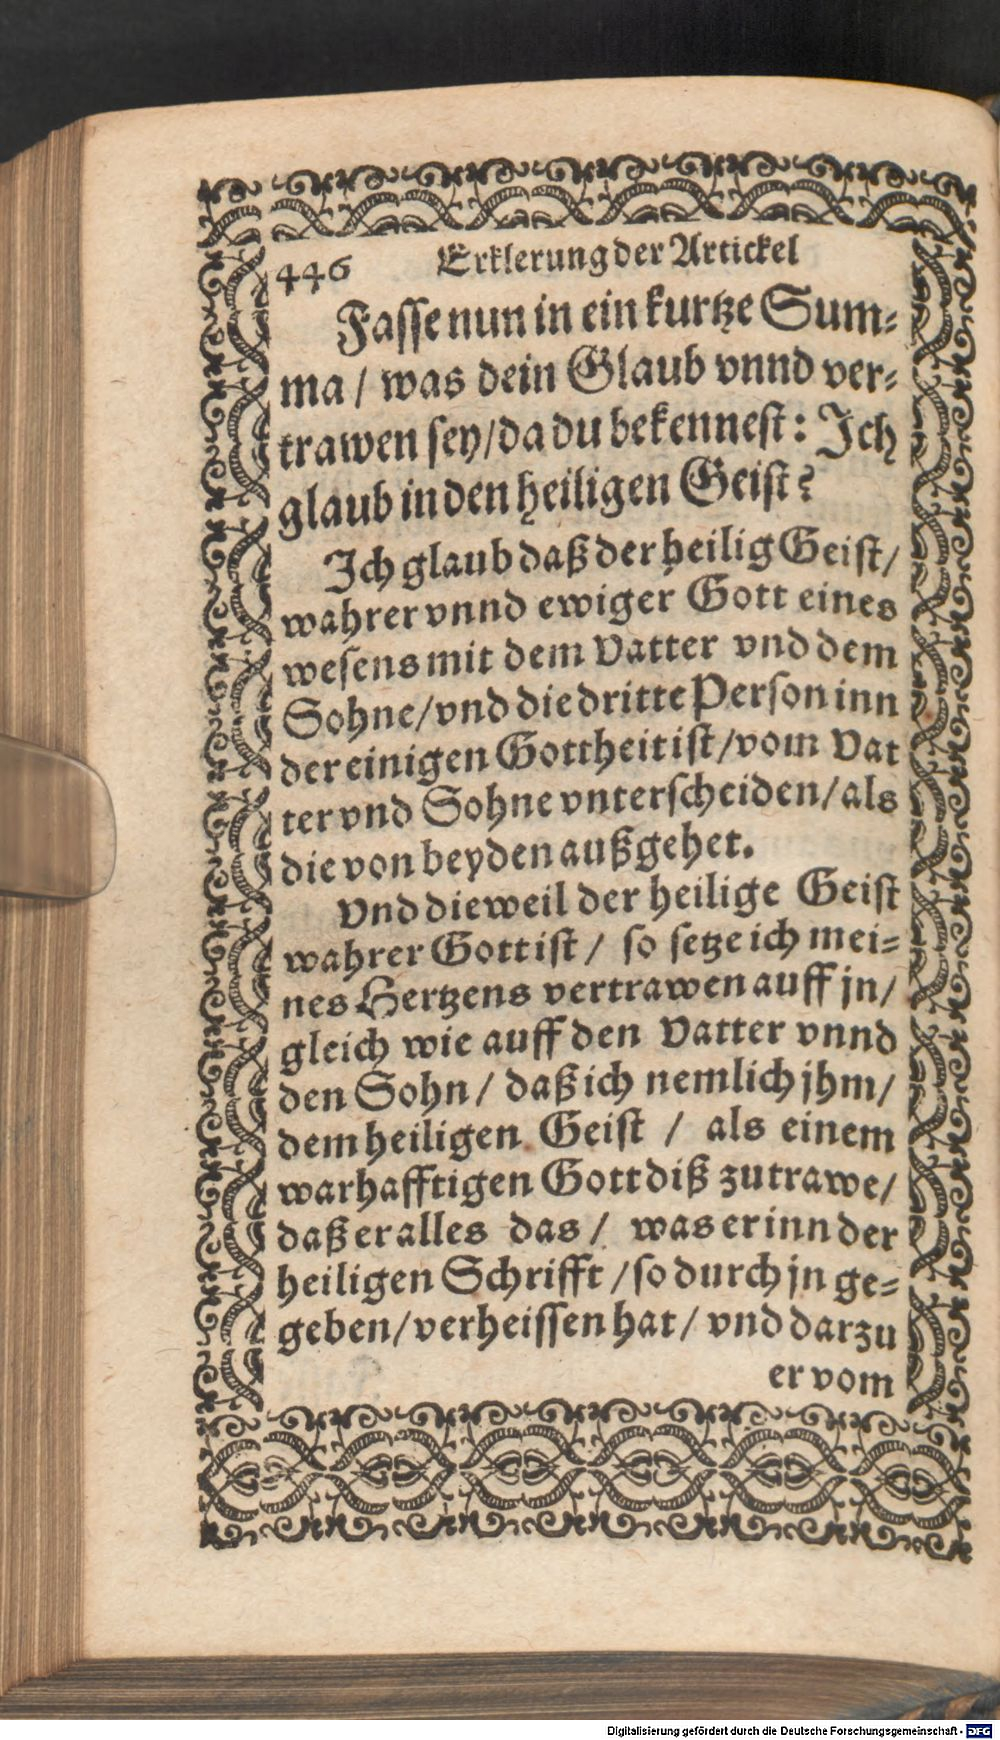 446 Erklerung der Artickel
Fasse nun in ein kurtze Sum-
ma / was dein Glaub vnnd ver-
trawen sey/ da du bekennest: Ich
glaub in den heiligen Geist?
Ich glaub daß der heilig Geist/
wahrer vnnd ewiger Gott eines
wesens mit dem Vatter vnd dem
Sohne/ vnd die dritte Person inn
der einigen Gottheit ist/ vom Vat
ter vnd Sohne vnterscheiden/ als
die von beyden außgehet.
Vnd dieweil der heilige Geist
wahrer Gott ist / so setze ich mei-
nes Hertzens vertrawen auff jn/
gleich wie auff den Vatter vnnd
den Sohn / daß ich nemlich jhm/
dem heiligen Geist / als einem
warhafftigen Gott diß zutrawe/
daß er alles das / was er inn der
heiligen Schrifft / so durch jn ge-
geben/ verheissen hat/ vnd darzu
er vom
Digitalisierung gefördert durch die Deutsche Forschungsgemeinschaft - DFG